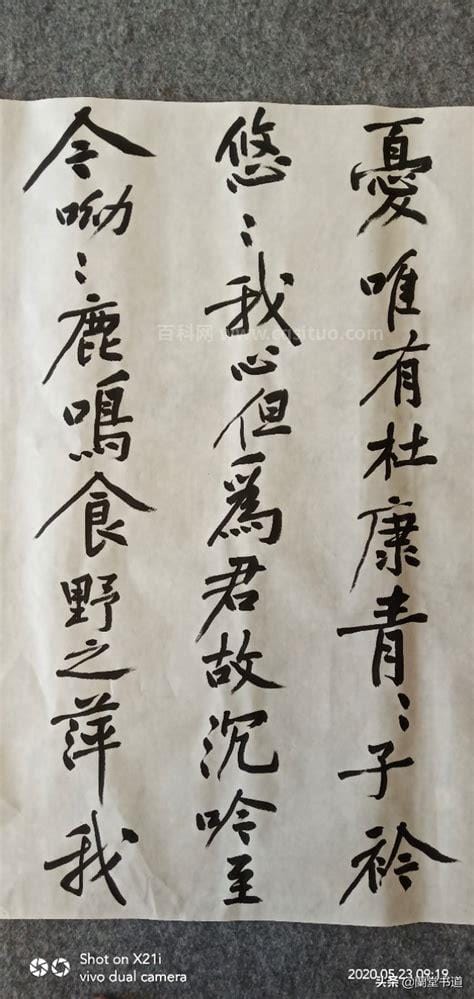 憂唯有杜康青〻子衿
悠〻我心但為君故沉吟至
今呦〻鹿鳴食野之萍我
百科网 www.casituo.com
Shot on X21i
vivo dual camera
2020.05.23 09:19
头条 @蘭堂书道